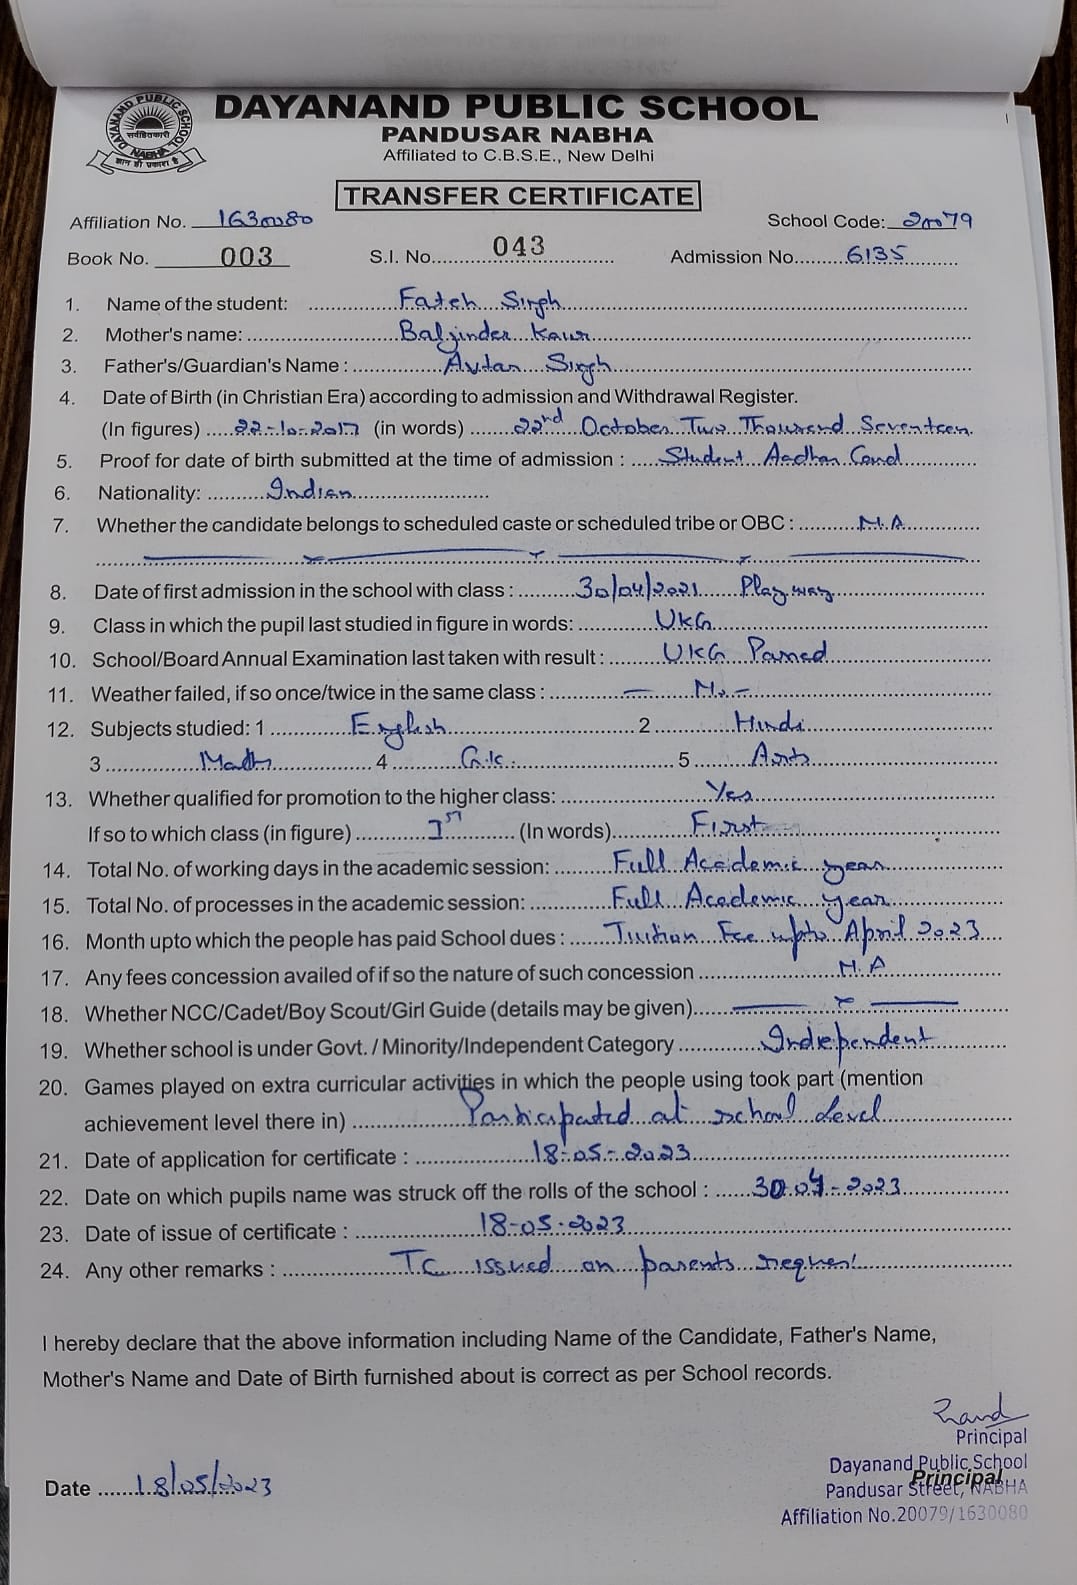 DAYANAND PUBLIC SCHOOL NABHA
सर्वहितकारी
ज्ञान ही प्रकाश है
DAYANAND PUBLIC SCHOOL
PANDUSAR NABHA
Affiliated to C.B.S.E., New Delhi
TRANSFER CERTIFICATE
Affiliation No. 1630080 School Code: 20079
Book No. 003 S.I. No. 043 Admission No. 6135
1. Name of the student: Fateh Singh
2. Mother's name: Baljinder Kaur
3. Father's/Guardian's Name : Avtar Singh
4. Date of Birth (in Christian Era) according to admission and Withdrawal Register.
(In figures) 22-10-2017 (in words) 22nd October Two Thousand Seventeen.
5. Proof for date of birth submitted at the time of admission : Student Aadhar Card
6. Nationality: Indian
7. Whether the candidate belongs to scheduled caste or scheduled tribe or OBC : N.A
8. Date of first admission in the school with class : 30/04/2021 Playway
9. Class in which the pupil last studied in figure in words: UKG
10. School/Board Annual Examination last taken with result : UKG Passed
11. Weather failed, if so once/twice in the same class : — No —
12. Subjects studied: 1 English 2 Hindi
3 Math 4 G.K. 5 Arts
13. Whether qualified for promotion to the higher class: Yes
If so to which class (in figure) 1st (In words) First
14. Total No. of working days in the academic session: Full Academic year
15. Total No. of processes in the academic session: Full Academic year
16. Month upto which the people has paid School dues : Tuition Fee upto April 2023
17. Any fees concession availed of if so the nature of such concession N.A
18. Whether NCC/Cadet/Boy Scout/Girl Guide (details may be given)
19. Whether school is under Govt. / Minority/Independent Category Independent
20. Games played on extra curricular activities in which the people using took part (mention
achievement level there in) Participated at school level
21. Date of application for certificate : 18-05-2023
22. Date on which pupils name was struck off the rolls of the school : 30-04-2023
23. Date of issue of certificate : 18-05-2023
24. Any other remarks : TC issued on parents request
I hereby declare that the above information including Name of the Candidate, Father's Name,
Mother's Name and Date of Birth furnished about is correct as per School records.
Principal
Dayanand Public School
Principal
Pandusar Street, NABHA
Date 18/05/2023
Affiliation No.20079/1630080